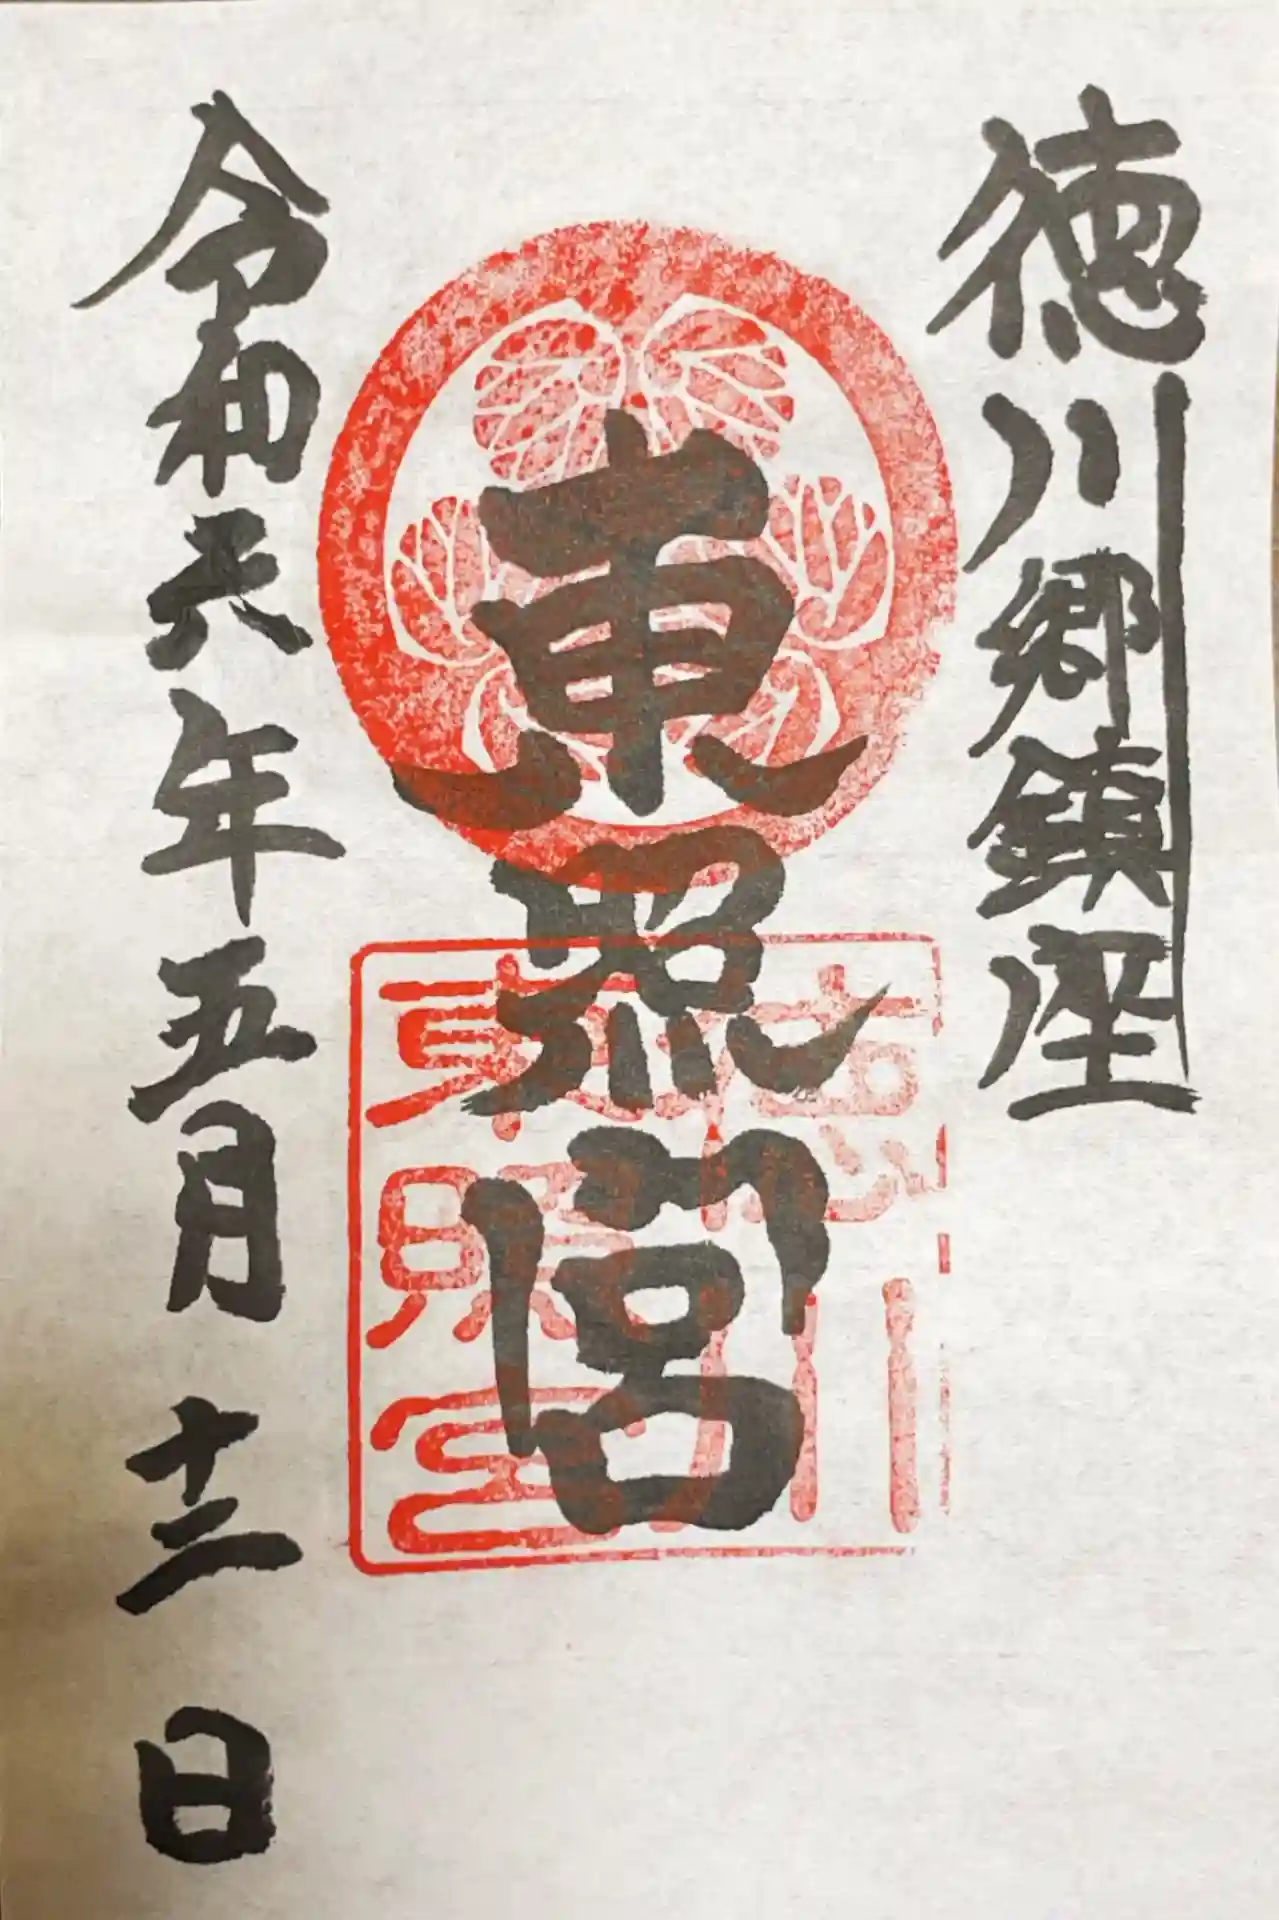 徳川郷鎮座
東照宮
徳川
東照宮
令和六年五月十二日